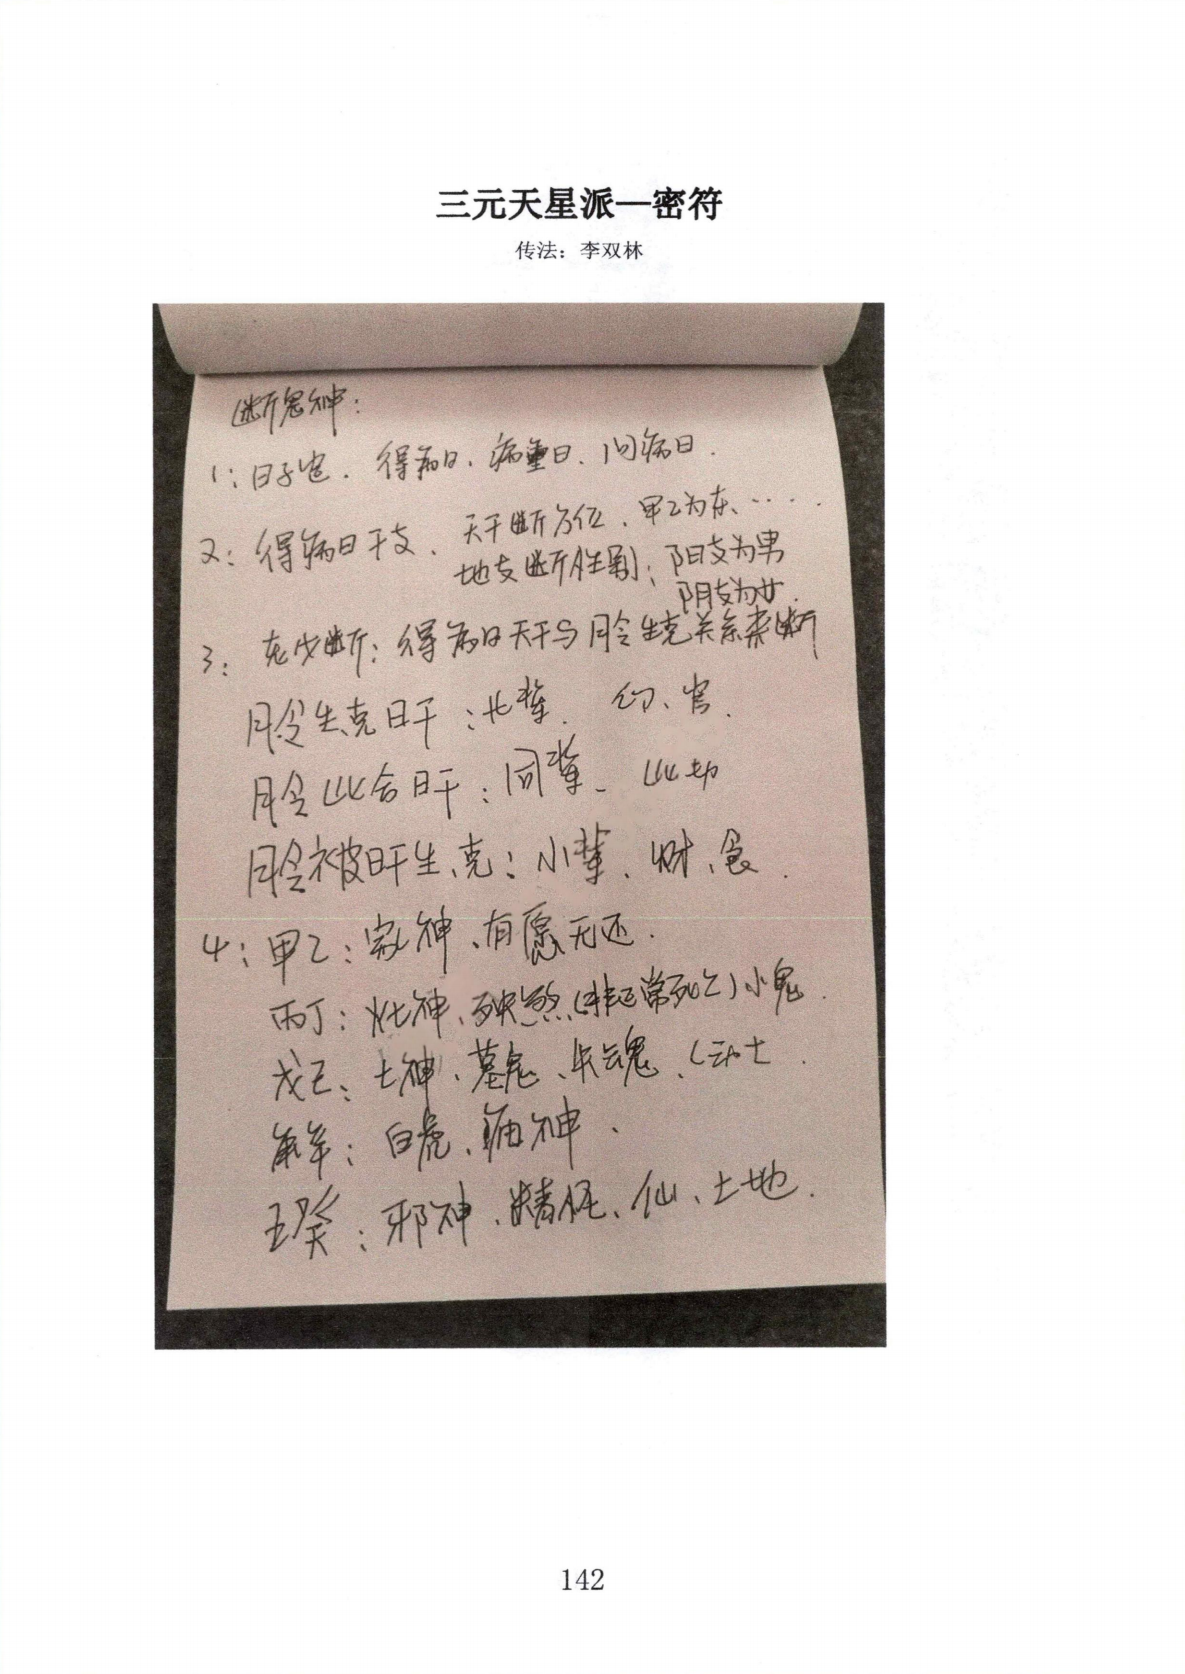 三元天星派—密符
传法：李双林
断鬼神：
1：日子定．得病日、病重日、问病日．
2：得病日干支、天干断方位、甲乙为东、……
地支断性别：阳支为男
阴支为女．
3：老少断：得病日天干与月令生克关系来断
月令生克日干：长辈． 印、官．
月令比合日干：同辈、 比劫
月令被日干生、克：小辈、财、食．
4：甲乙：家神、有愿无还．
丙丁：灶神、殃煞（非正常死亡）小鬼．
戊己：土神、墓鬼、失魂、（动土．
庚辛：白虎、庙神．
壬癸：邪神、精怪、仙、土地．
142